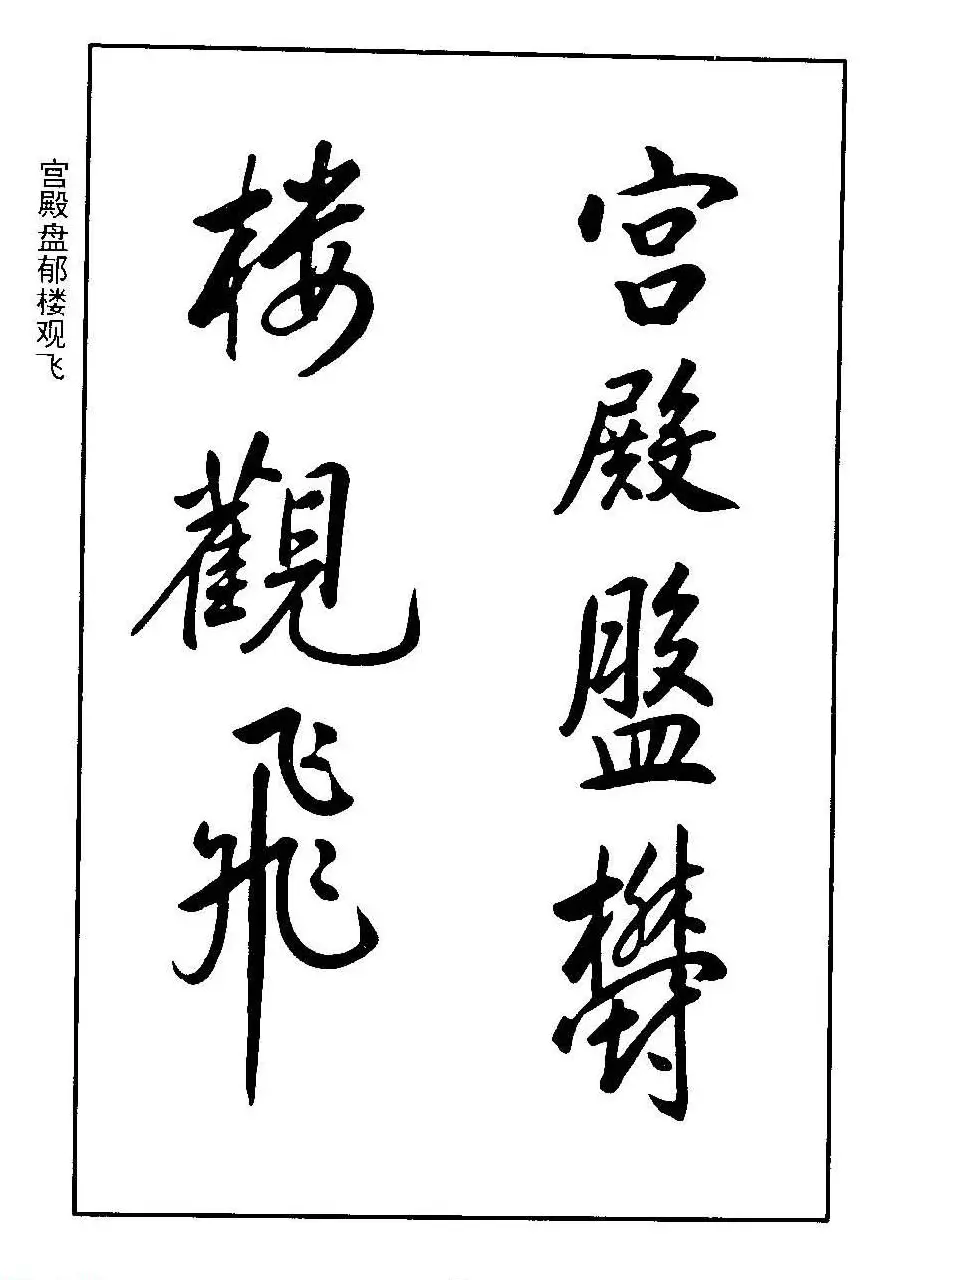 宫殿盤鬱
楼觀飛
宫殿盘郁楼观飞